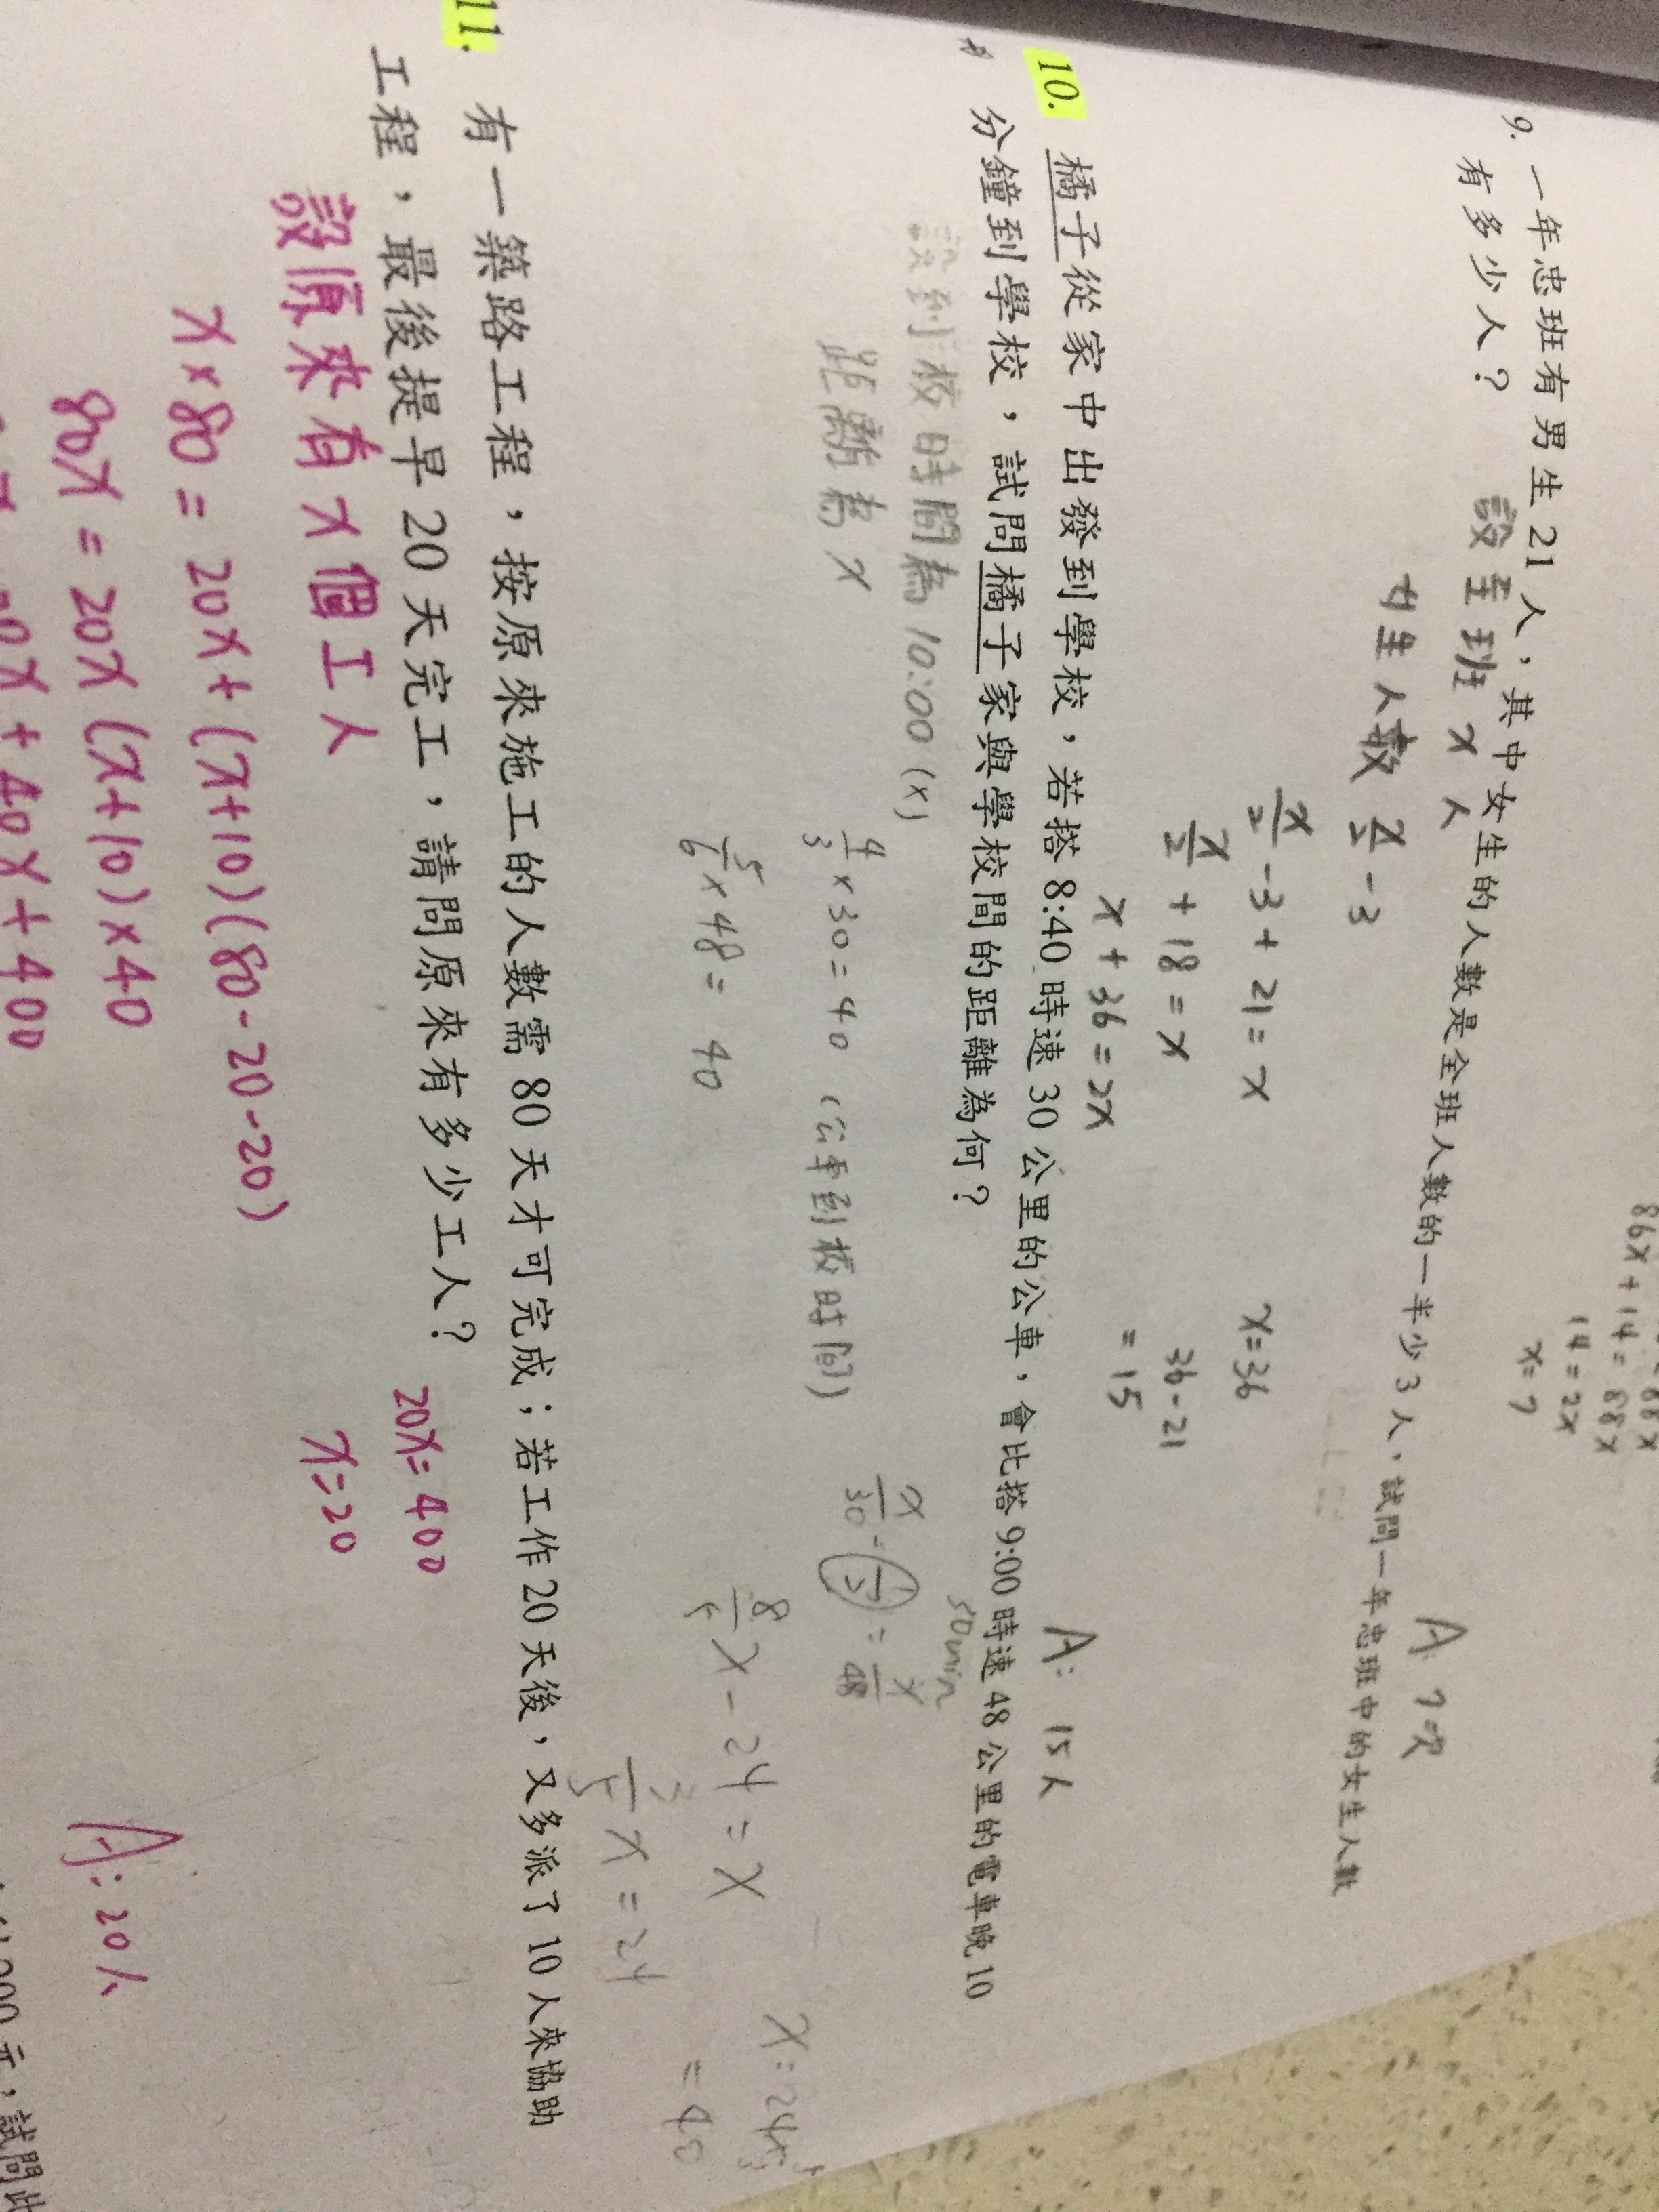 86x + 14 = 88x
14 = 2x
x = 7
A: 7次
9. 一年忠班有男生21人，其中女生的人數是全班人數的一半少3人，試問一年忠班中的女生人數
有多少人？
設全班 x 人
女生人數 x/2 - 3
x/2 - 3 + 21 = x
x/2 + 18 = x
x + 36 = 2x
x = 36
36 - 21
= 15
A: 15人
10. 橘子從家中出發到學校，若搭8:40時速30公里的公車，會比搭9:00時速48公里的電車晚10
分鐘到學校，試問橘子家與學校間的距離為何？
設到校時間為 10:00 (x)
距離為 x
4/3 × 30 = 40 (公車到校時間)
5/6 × 48 = 40
30min
x/30 - 1/2 = x/48
8/5 x - 24 = x
3/5 x = 24
x = 24 × 5/3
= 40
11. 有一築路工程，按原來施工的人數需80天才可完成；若工作20天後，又多派了10人來協助
工程，最後提早20天完工，請問原來有多少工人？
設原來有 x 個工人
x × 80 = 20x + (x+10)(80-20-20)
80x = 20x (x+10) × 40
20x + 40x + 400
20x = 400
x = 20
A: 20人
200元，試問此